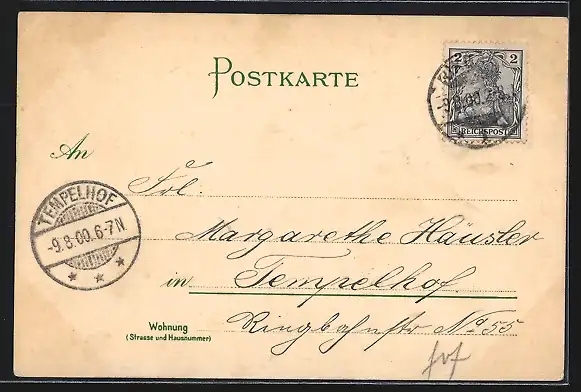 POSTKARTE
2 2
REICHSPOST
-9.8.00.
An
Frl.
TEMPELHOF
-9.8.00.6-7N
* * *
Margarethe Häusler
in Tempelhof.
Wohnung
(Strasse und Hausnummer)
Ringbahnstr No 55